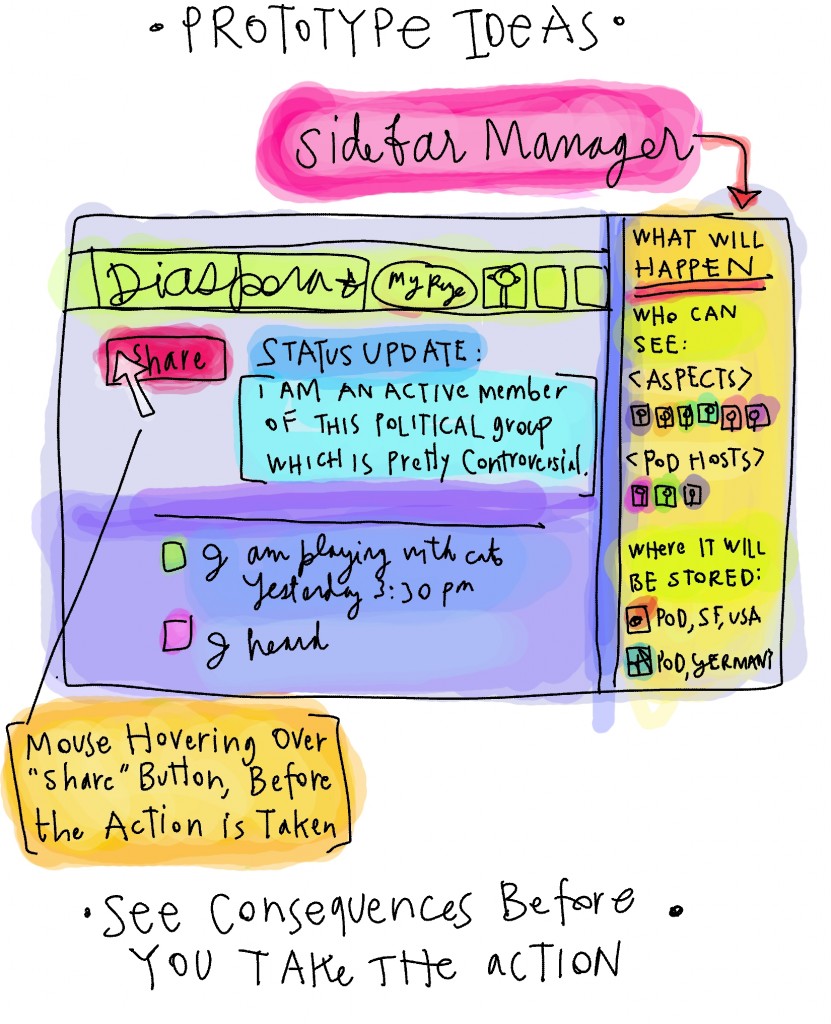 • PROTOTYPE IDEAS •
Sidebar Manager
Diaspora*
My Page
Share
STATUS UPDATE:
I AM AN ACTIVE member
OF THIS POLITICAL group
WHICH IS Pretty Controversial.
I am playing with cats
Yesterday 3:30 pm
I heard
WHAT WILL
HAPPEN
WHO CAN
SEE:
<ASPECTS>
<POD HOSTS>
WHERE IT WILL
BE STORED:
POD, SF, USA
POD, GERMANY
Mouse Hovering Over
"Share" Button, Before
the Action is Taken
• SEE CONSEQUENCES BEFORE •
YOU TAKE THE ACTION